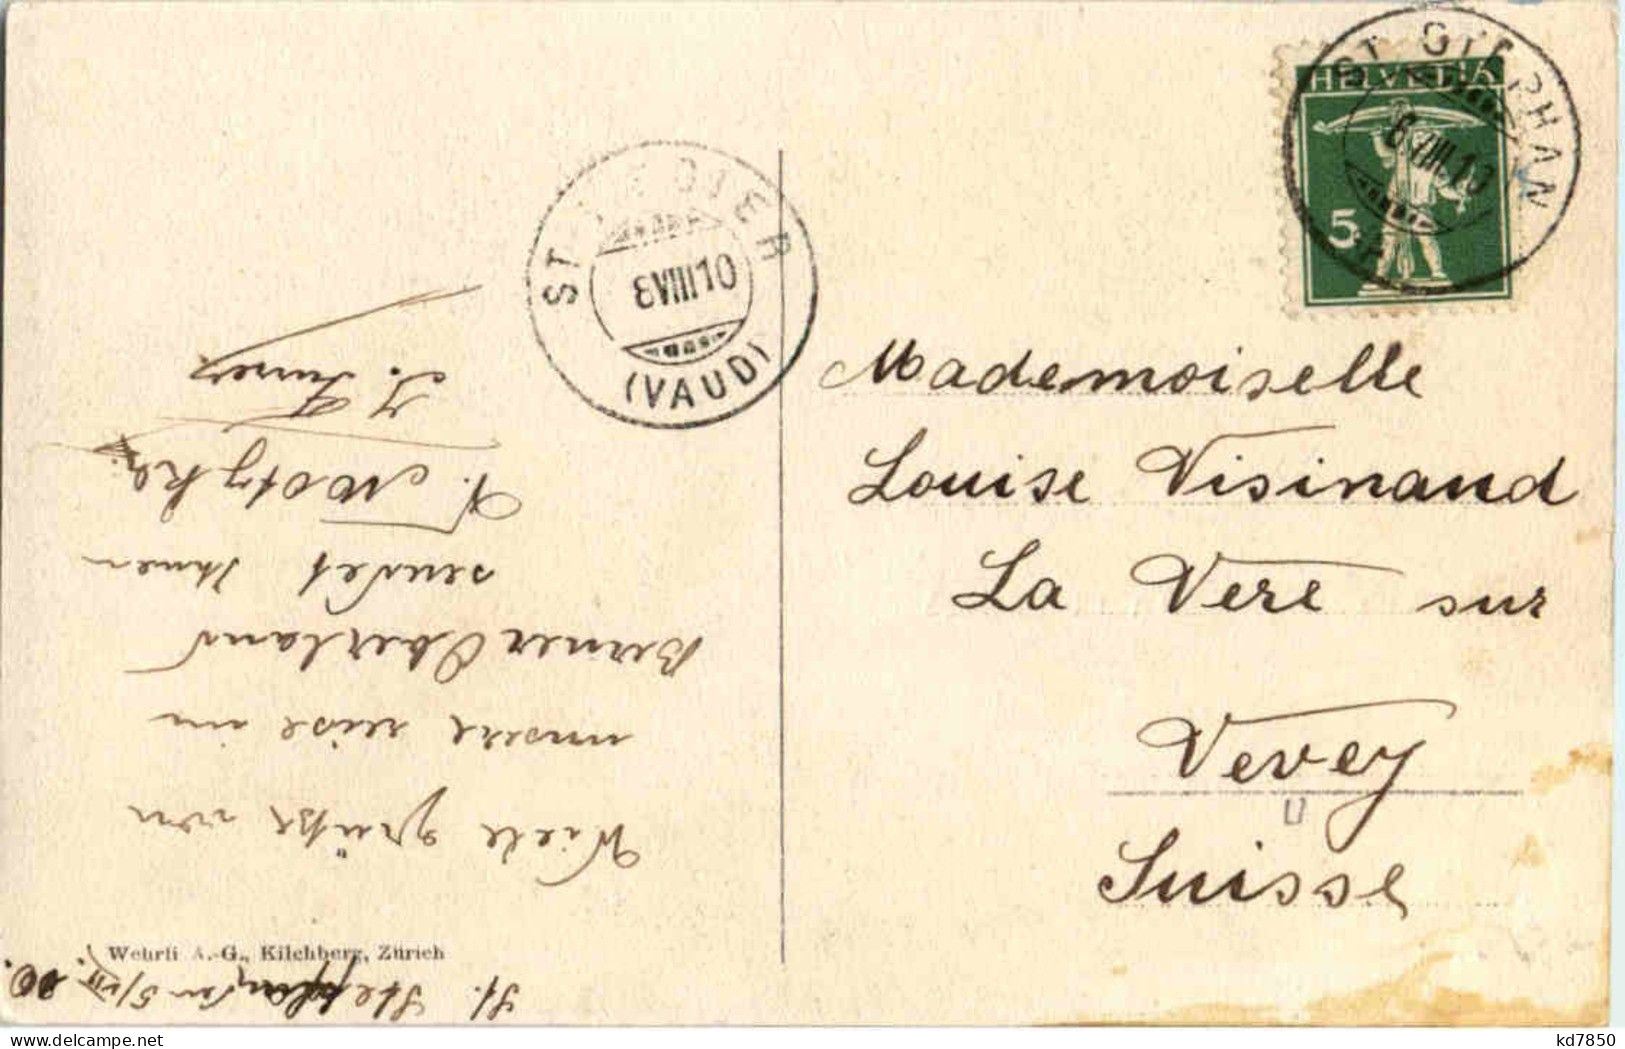 St. Stephan, den 5/VIII. 10.
Viele Grüße von
unsere reise im
Berner Oberland
sendet Ihnen
V. Motyka
Wehrli A.-G., Kilchberg, Zürich
(VAUD)
6 VIII 10
ST STEPHAN
6.VIII.10
HELVETIA
5
Mademoiselle
Louise Visinand
La Vere sur
Vevey
Suisse
kd7850